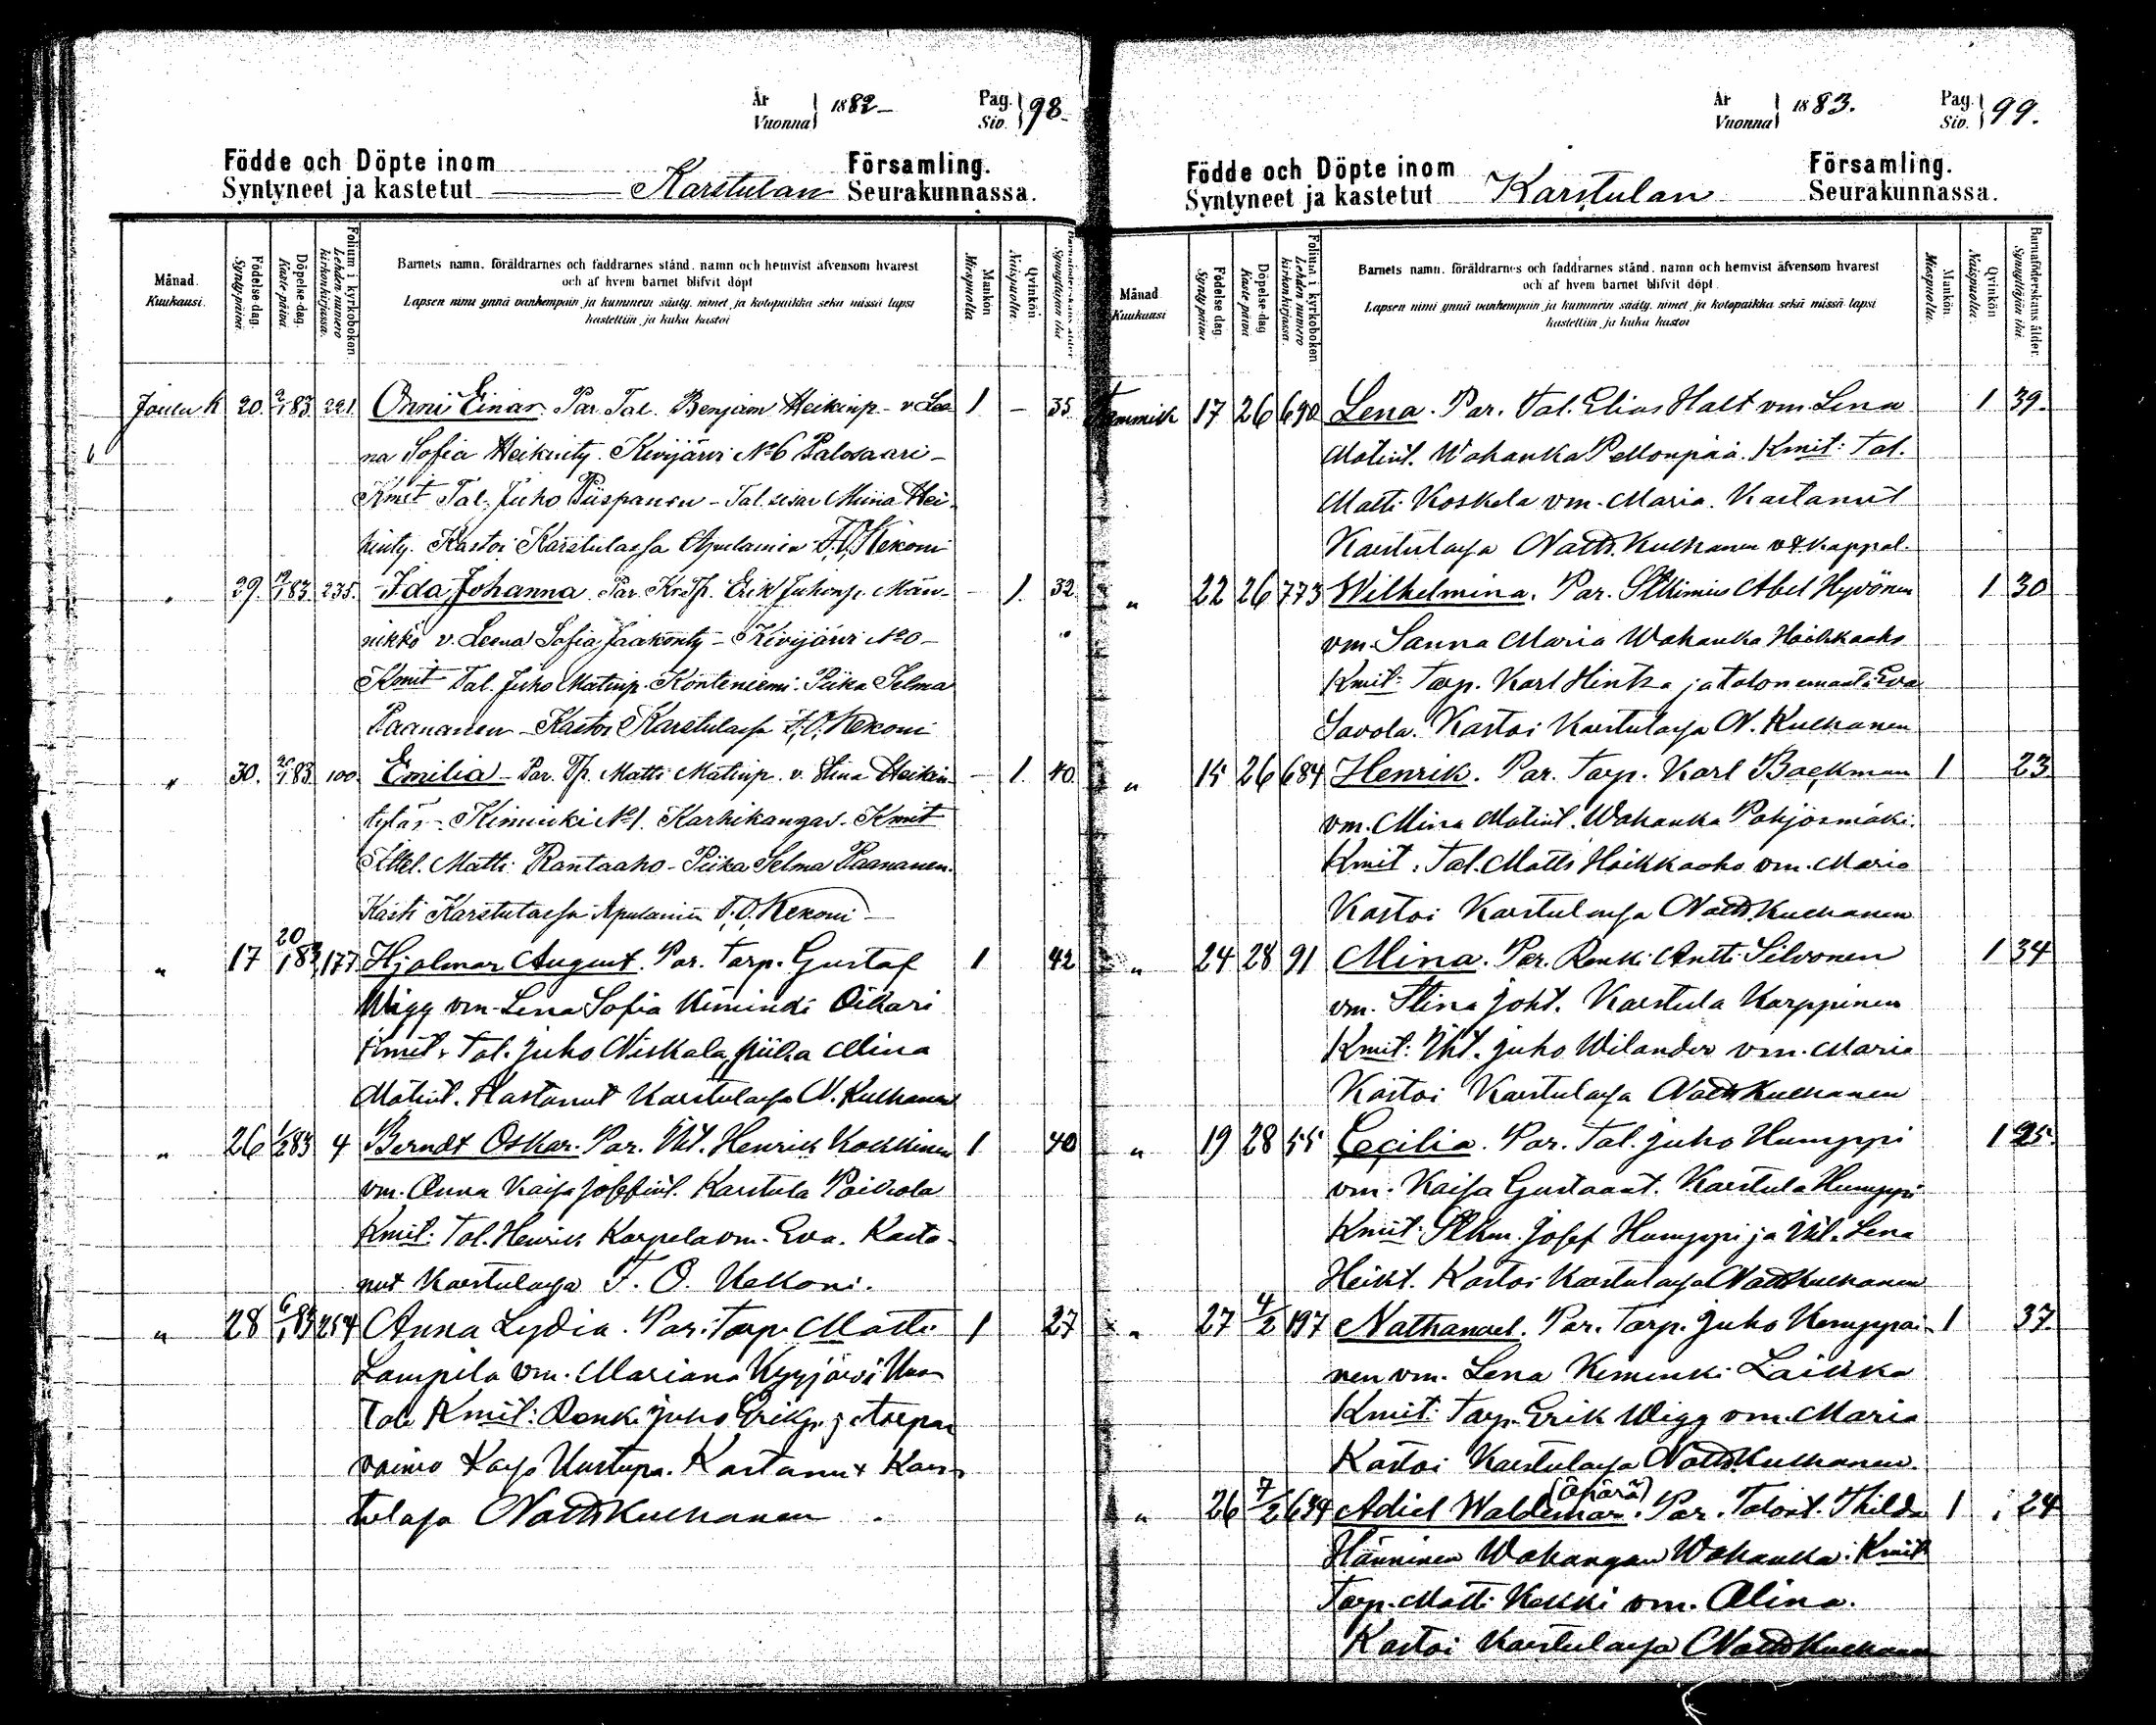 År
Vuonna } 1882-
Pag.
Siv. } 98-
Födde och Döpte inom Församling.
Syntyneet ja kastetut Karstulan Seurakunnassa.
Månad. Kuukausi.
Födelse-dag. Synty-päivä.
Döpelse-dag. Kaste-päivä
Folium i kyrkoboken. Lehden numero kirkonkirjassa.
Barnets namn, föräldrarnes och faddrarnes stånd, namn och hemvist äfvensom hvarest
och af hvem barnet blifvit döpt
Lapsen nimi ynnä vanhempain ja kummein sääty, nimet, ja kotopaikka sekä missä lapsi
kastettiin ja kuka kastoi
Mankön Miespuolia
Qvinkön. Naispuolia.
Joulu k 20. 2/1 83 221. Onni Einar. Par. Tal. Benjam Heikinp. - v. Lee 1 - 35
na Sofia Heikinty. Kivijärvi No 6 Palosaari -
Kmit Tal. Juho Piispanen - Tal. sisar Miina Hei
kinty. Kastoi Karstulassa Apulainen F. O. Kekoni
" 29. 19/1 83. 235. Ida Johanna. Par. Erik Juhonp. Män- - 1. 32
nikkö v. Leena Sofia Jaakonty - Kivijärvi No 0 -
Kmit Tal. Juho Matinp. Konteniemi. Piika Selma
Paananen - Kastoi Karstulassa F. O. Kekoni
" 30. 20/1 83 100. Emilia - Par. Tp. Matti Matinp. v. Stina Heikin - 1. 40.
tytär - Kiminki No 1. Karhikangas. Kmit
Matti Rantaaho - Piika Selma Paananen.
Kasti Karstulassa Apulainen F. O. Kekoni -
" 17 20/1 83 177 Hjalmar August. Par. Tarp. Gustaf 1 42
Wigg vm. Lena Sofia Kiminki Oikari
Kmit. Tal. Juho Niskala, piika Mina
Matint. Kastanut Karstulassa N. Kulhanen
" 26 1/2 83 4 Berndt Oskar. Par. Itt. Henrik Kokkinen 1 40
vm. Anna Kaisa Josefint. Karstula Paikola
Kmit: Tal. Henrik Karpela vm. Eva. Kasta-
nut Karstulassa F. O. Kekoni.
" 28 6/1 83 254 Anna Lydia. Par. Tarp. Matti 1 27
Lampila vm. Mariana Kyyjärvi Uusi
Talo Kmit: Renki Juho Erikp. ja torpan
vaimo Kaisa Uustupa. Kastanut Kars-
tulassa Natth Kulhanen.
År
Vuonna } 1883.
Pag.
Siv. } 99.
Födde och Döpte inom Församling.
Syntyneet ja kastetut Karstulan Seurakunnassa.
Månad Kuukausi
Födelse dag. Synty päivä
Döpelse-dag Kaste päivä
Folium i kyrkoboken Lehden numero kirkonkirjassa.
Barnets namn, föräldrarnes och faddrarnes stånd, namn och hemvist äfvensom hvarest
och af hvem barnet blifvit döpt.
Lapsen nimi ynnä vanhempain ja kummein sääty, nimet, ja kotopaikka sekä missä lapsi
kastettiin ja kuka kastoi
Mankön Miespuolia.
Qvinkön Naispuolia.
Barnaföderskans ålder. Synnyttäjän ikä.
Tammik 17 26 690 Lena. Par. Tal. Elias Halt vm. Lena 1 39.
Matint. Wahanka Pellonpää. Kmit: Tal.
Matti Koskela vm. Maria. Kastanut
Karstulassa Natth. Kulhanen vt kappal.
" 22 26 773 Wilhelmina. Par. Abel Hyvönen 1 30
vm. Sanna Maria Wahanka Hoikkaaho
Kmit: Tarp. Karl Hintza ja talon emäntä Eva
Savola. Kastoi Karstulassa N. Kulhanen
" 15 26 684 Henrik. Par. Tarp. Karl Backman 1 23
vm. Mina Matint. Wahanka Pohjosmäki.
Kmit: Tal. Matts Hoikkaaho vm. Maria
Kastoi Karstulassa Natth Kulhanen
" 24 28 91 Mina. Par. Renki Antti Silvonen 1 34
vm. Stina Joht. Karstula Karppinen
Kmit: Itt. Juho Wilander vm. Maria
Kastoi Karstulassa Natth Kulhanen
" 19 28 55 Cecilia. Par. Tal. Juho Humppi 1 25.
vm. Kaisa Gustaant. Karstula Humppi
Kmit: Josef Humppi ja Itt. Lena
Heikt. Kastoi Karstulassa Natth Kulhanen
" 27 4/2 197 Nathanael. Par. Tarp. Juho Kemppai- 1 37.
nen vm. Lena Keminki Laikka
Kmit: Tarp. Erik Wigg vm. Maria
Kastoi Karstulassa Natth. Kulhanen.
(äpärä)
" 26 7/2 634 Adiel Waldemar. Par. Talont. Thilda 1 24
Hänninen Wahangan Wahanka. Kmit.
Tarp. Matti Kekki vm. Alina.
Kastoi Karstulassa Natth Kulhanen